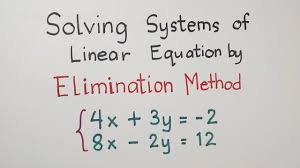 Solving Systems of
Linear Equation by
Elimination Method
4x + 3y = -2
8x - 2y = 12